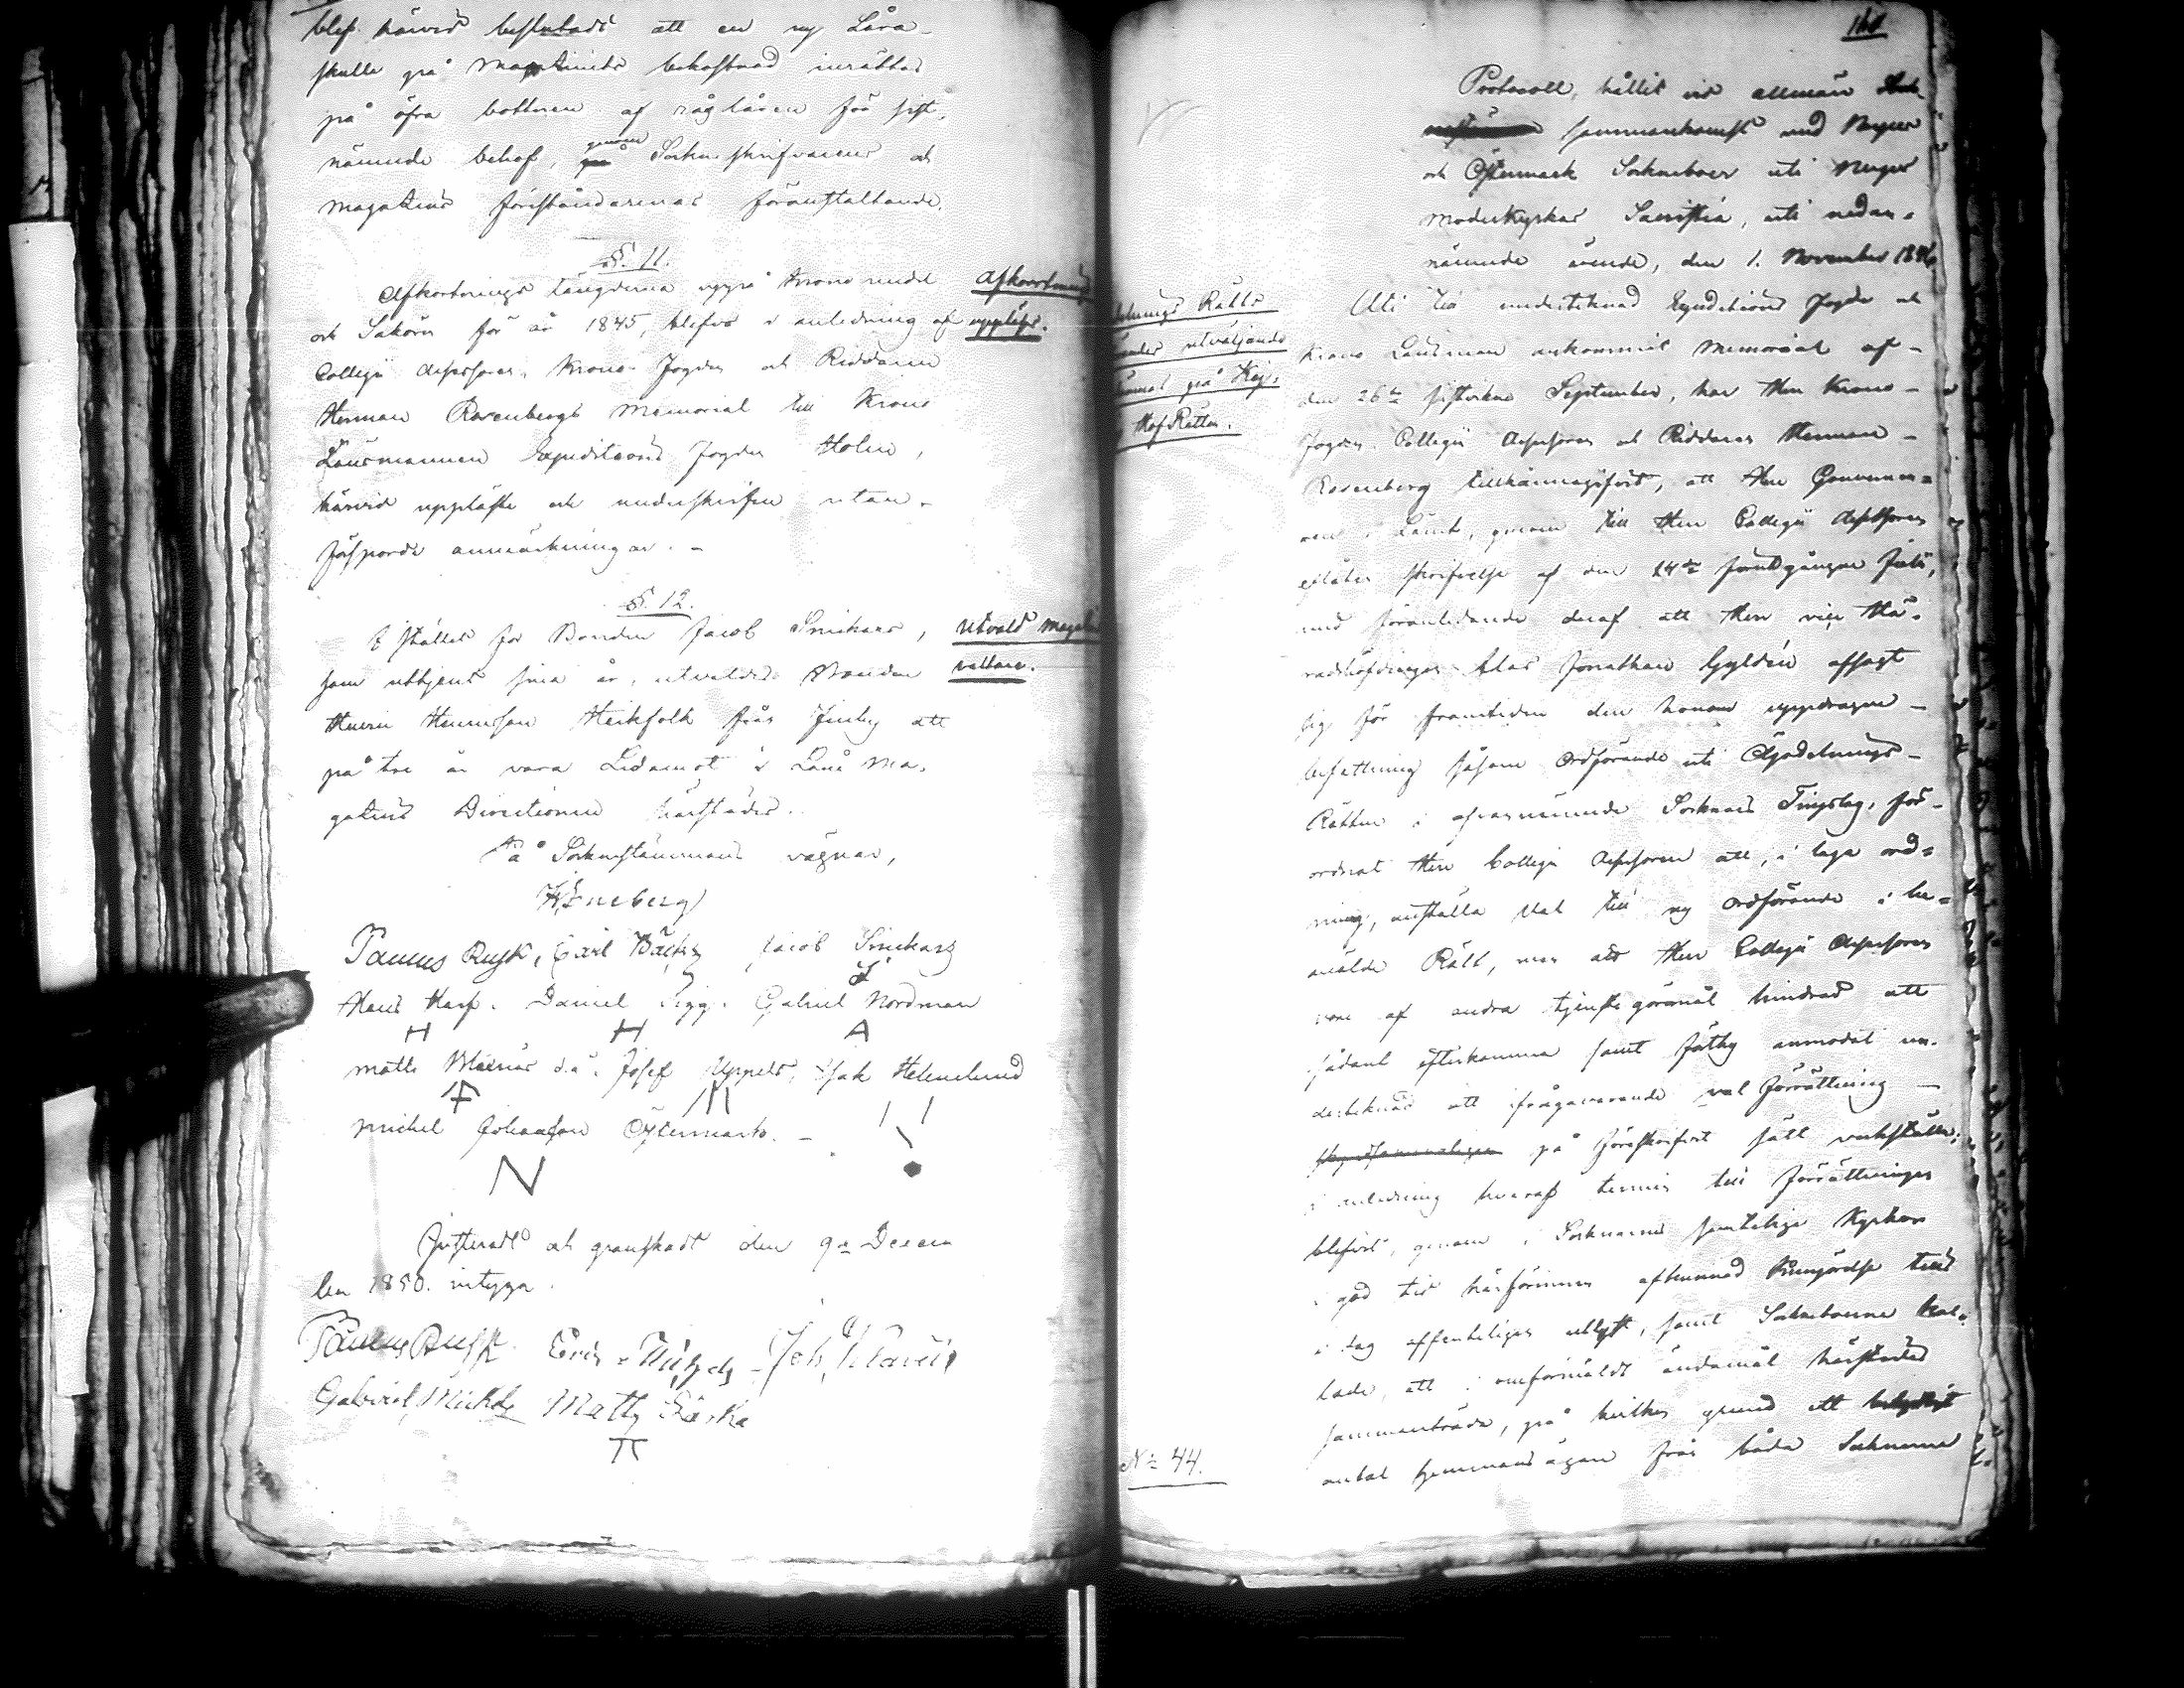 blef härvid beslutadt att en ny Låra
skulle på Magazinets bekostnad inrättas
på öfra bottnen af råglåren för sist-
nämnde behof, genom Sockneskrifvarens och
Magazins föreståndarenas föranstaltande.
§. 11.
Afkortnings längderna uppå Krono medel
och Saköre för år 1845, blefvo i anledning af
Collegii Assessoren, Krono Fogden och Riddaren
Herman Rosenbergs Memorial till Krono
Länsmannen Expeditions Fogden Holm,
härvid uppläste och underskrifne utan
försporde anmärkningar. -
Afkortning
uppläses.
§. 12.
I stället för Bonden Jacob Smickars,
som uttjent sina år, utvaldes Bonden
Henric Henricsson Heikfolk från Finby att
på tre år vara Ledamot i Låne Ma-
gazins Directionen härstädes.
Utvald Magazin
På Sockenstämmans vägnar,
Paulus Rusk, Carl Bäck, Jacob Smickars
Hans Harf. Daniel Pigg. Gabriel Nordman
H H A
Matts d.ä. Josef Uppels, Isak Helenelund
Michel Johansson Östermark. -
N
Justeradt och granskadt den 9de Decem
ber 1850. intyga.
Paulus Rusk Eric
Gabriel Matts
Protocoll, hållit vid allmän
sammankomst med Nerpes
och Östermark Sockneboer uti Nerpes
Moderkyrkas Sacristia, uti nedan-
nämnde ärende, den 1. November 1846
delnings Rätts
utväljande
på Kejs.
HofRätten.
Uti till undertecknad Expeditions Fogde och
Krono Länsman ankommit Memorial af
den 26te sistledne September, har Herr Krono
Fogden, Collegii Assessoren och Riddaren Herman
Rosenberg tillkännagifvit, att Herr Gouverneu-
ren i Länet, genom till Herr Collegii Assessoren
aflåten skrifvelse af den 14de förutgångne Julii,
med föranledande deraf att Herr vice Hä-
radshöfdingen Clas Jonathan Gyldén afsagt
sig för framtiden den honom uppdragne
befattning såsom Ordförande uti Ägodelnings-
Rätten i ofvannämnde Socknars Tingslag, för-
ordnat Herr Collegii Assessoren att, i laga ord-
ning, anställa Val till ny Ordförande i be-
mälde Rätt, men att Herr Collegii Assessoren
vore af andra tjenstegöromål hindrad att
sådant efterkomma samt förthy anmodat un-
dertecknad att ifrågavarande val förrättning
på föreskrifvet sätt verkställa,
i anledning hvaraf termin till förrättningen
blifvit, genom i Socknarnes samtelige Kyrkor
i god tid härförinnan aflemnad Kungörelse till
i dag offenteligen utlyst, samt Sockneboerne kal-
lade, att i omförmäldt ändamål härstädes
sammanträda, på hvilken grund ett betydligt
antal hemmansägare från båda Socknarne
№ 44.